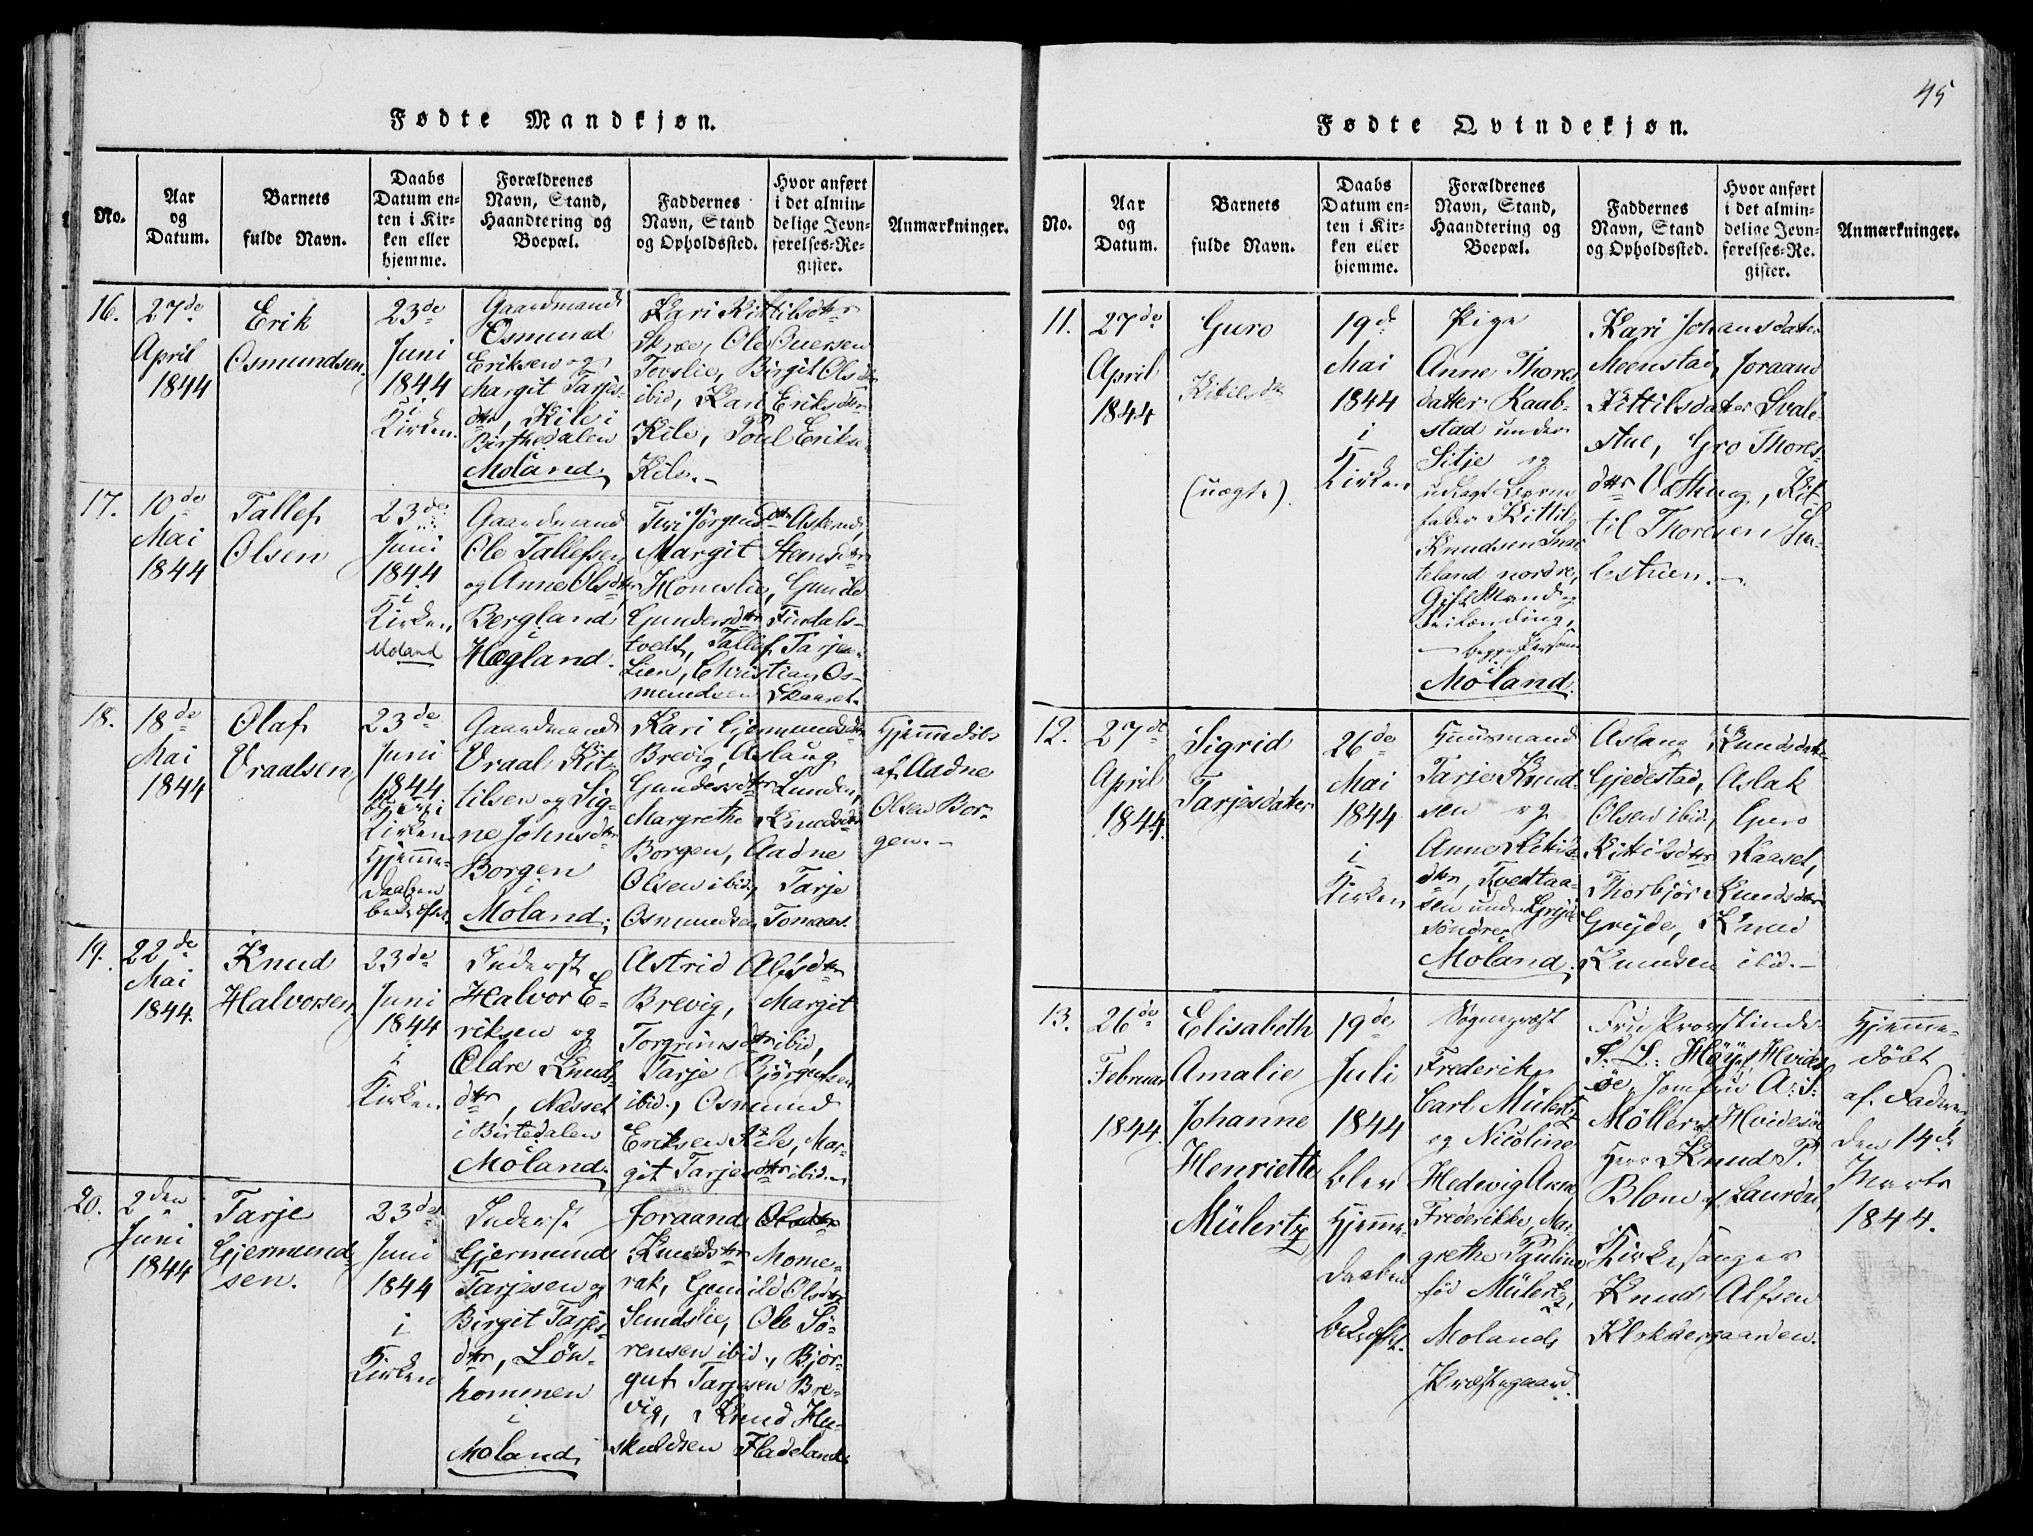 45
Fødte Mandkjøn.
No.
Aar
og
Datum.
Barnets
fulde Navn.
Daabs
Datum en-
ten i Kir-
ken eller
hjemme.
Forældrenes
Navn, Stand,
Haandtering og
Boepæl.
Faddernes
Navn, Stand
og Opholdssted.
Hvor anført
i det almin-
delige Jevn-
førelses-Re-
gister.
Anmærkninger.
16.
27de
April
1844
Erik
Osmundsen
23de
Juni
1844
i
Kirken.
Gaardmand
Osmund
Eriksen og
Margit Tarjes-
dtr, Kile i
Birthedalen
Moland
Kari Kittilsdtr
Skree, Ole
Tovslie, Birgit Olsdtr
ibid, Kari Eriksdtr
Kile, Poul Eriks-
Kile.-
17.
10de
Mai
1844
Tallef
Olsen
23de
Juni
1844
i
Kirken
Moland
Gaardmand
Ole Tallefsen
og Anne Olsdtr
Bergland
i
Høgland.
Turi Jørgensdtr
Margit
Gunild
Gundersdtr Findals-
tvedt, Tallef Tarjes-
Lien, Christian Os-
mundsen Skaaret.
18.
18de
Mai
1844
Olaf
Vraalsen
23de
Juni
1844
i
Kirken
Hjemme-
daaben
bekræftet
Gaardmand
Vraal Kit-
tilsen og Sig-
ne Johnsdtr
Borgen
i
Moland
Kari Gjermundsdtr
Brevig, Aslaug
Gundersdtr Lunden,
Margrethe Knudsdtr
Borgen, Aadne
Olsen ibid, Tarje
Osmundsen Tomaas.
Hjemmedøbt
af Aadne
Olsen Bor-
gen.-
19.
22de
Mai
1844.
Knud
Halvorsen
23de
Juni
1844
i
Kirken
Inderst
Halvor E-
riksen og
Eldre Knuds-
dtr, Næsset
i Birtedalen
Moland.
Astrid Alfsdtr
Brevig, Margit
Torgrimsdtr ibid,
Tarje Bjørgufsen
ibid, Osmund
Eriksen Kile, Mar-
git Tarjesdtr ibid.-
20.
2den
Juni
1844
Tarje
Gjermund-
sen.
23de
Juni
1844
i
Kirken
Inderst
Gjermund
Tarjesen og
Birgit Tarjes-
dtr, Løn-
hommen
i
Moland
Joraand Olsdtr
Knudsdtr Mome-
rak, Gunild Olsdtr
Sundslie, Ole Sø-
rensen ibid, Bjør-
guf Tarjesen Bre-
vig, Knud Hy-
skuldsen Fladeland
Fødte Qvindekjøn.
No.
Aar
og
Datum.
Barnets
fulde Navn.
Daabs
Datum en-
ten i Kir-
ken eller
hjemme.
Forældrenes
Navn, Stand,
Haandtering og
Boepæl.
Faddernes
Navn, Stand
og Opholdssted.
Hvor anført
i det almin-
delige Jevn-
førelses-Re-
gister.
Anmærkninger.
11.
27de
April
1844
Guro
Kitilsdtr
(uægte).
19de
Mai
1844
i
Kirken
Pige
Anne Thores
datter Raab-
stad under
Sitje og
udlagt Barne
fader Kittil
Knudsen
teland nordre,
Gift Mand og
begge
i
Moland.
Kari Johansdatter
Meenstad, Joraand
Kittilsdatter Svale-
stue, Gro Thores-
dtr Vething, Kit-
til Thoresen Sva-
lestuen.-
12.
27de
April
1844.
Sigrid
Tarjesdatter
26de
Mai
1844
i
Kirken
Huusmand
Tarje Knud-
sen og
Anne Kittils-
dtr, Tvedtaa-
sen under Grøjde
søndre i
Moland.
Aslaug Knudsdtr
Gjedestad, Aslak
Olsen ibid, Guro
Kittilsdtr Kaaset,
Thorbjør Knudsdtr
Grøjde, Knud
Knudsen ibid.-
13.
26de
Februar
1844.
Elisabeth
Amalie
Johanne
Henriette
Mülertz
19de
Juli
1844
blev
Hjemme-
daaben
bekræftet.
Sognepræst
Frederik
Carl Mülertz
og Nicoline
Hedevig Anna
Frederikke, Mar-
grethe Pauline
fød Mülertz,
Molands
Præstegaard.
Fru Provstinde
F. L. Høyer Hvides-
øe, Jomfru A. F.
Møller Hvidesø
Herr Knud P.
Blom af Laurdal
Kirkesanger
Knud Alfsen
Klokkergaarden.
Hjemme-
døbt
af Faderen
den 14de
Marts
1844.